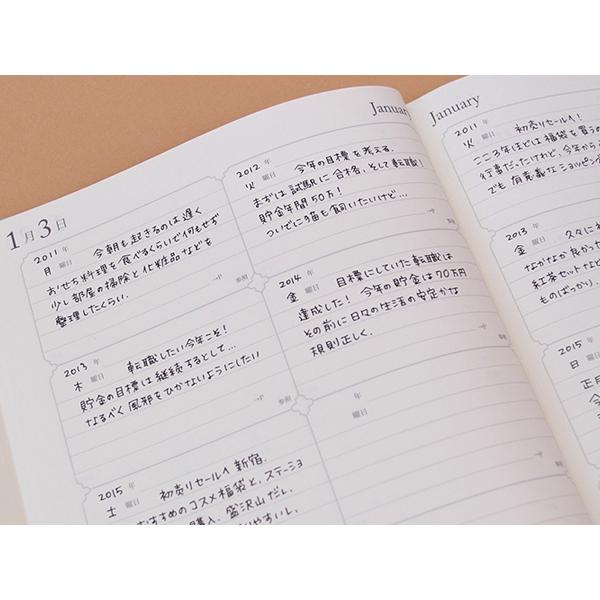 January
1月3日
2011年
月曜日 今朝も起きるのは遅く
おせち料理を食べるくらいで何もせず
少し部屋の掃除と化粧品などを
整理したくらい。
参照
2012年
火曜日 今年の目標を考える。
まずは試験に合格、そして転職!
貯金年間50万!
ついでに猫も飼いたいけど…
2013年
木曜日 転職したい今年こそ!
貯金の目標は継続するとして…
なるべく風邪をひかないようにしたい
参照
2014年
金曜日 目標にしていた転職は
達成した! 今年の貯金は70万円
その前に日々の生活の安定かな
規則正しく。
2015年
土曜日 初売りセールイ新宿.
おすすめのコスメ福袋と、ステーショ
購入、盛沢山だし。
やすいし、
年
曜日
January
2011年
火曜日 初売りセールイ!
こころ年ほどは福袋を買うの
行事だったけれど、今年から
でも有意義なショッピン
2013年
金曜日 久々に
なかなか良かっ
紅茶セットなど
ものばっかり。
2015年
日曜日
正月
今